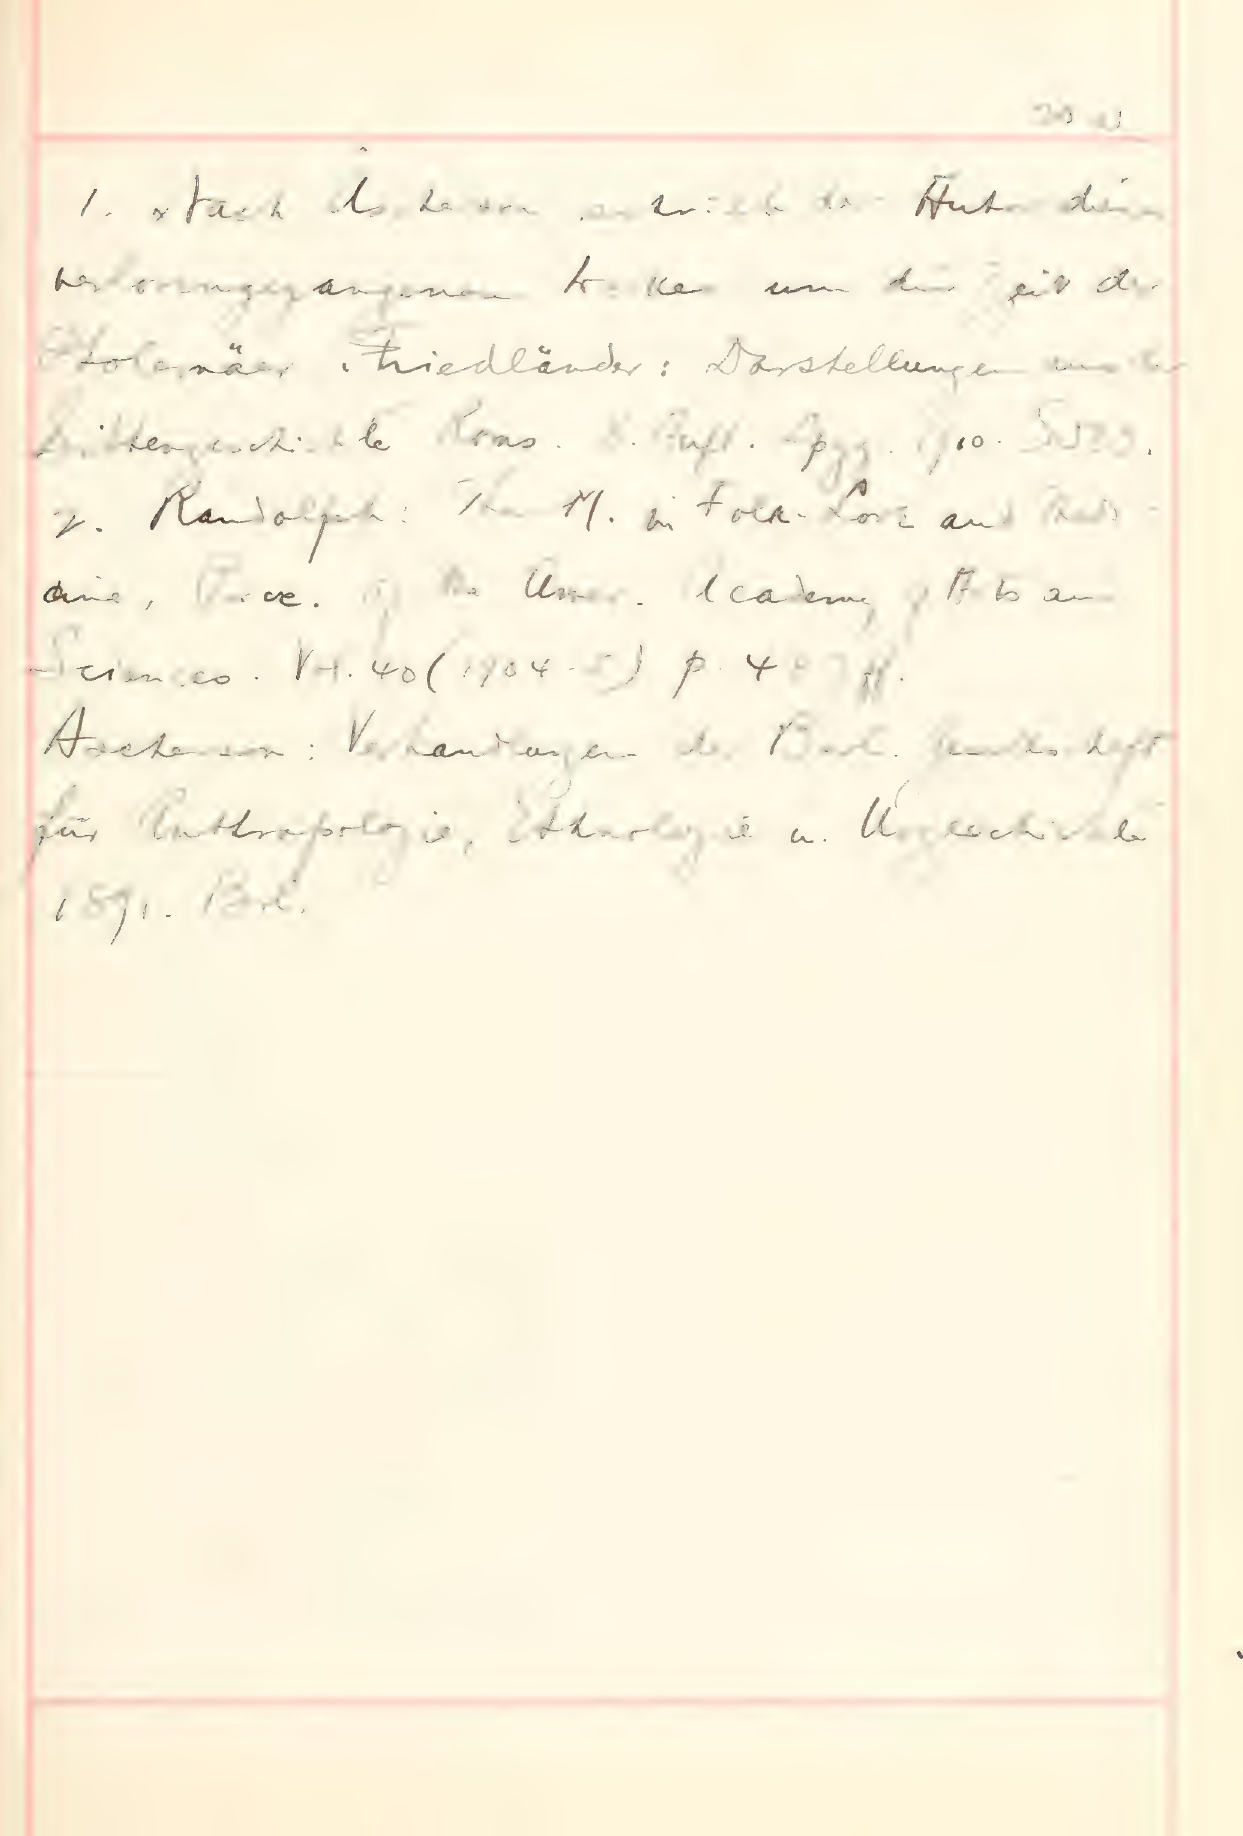 1. Nach Ascherson schrieb der Autor dieses
verlorengegangenen Werkes um die Zeit der
Ptolemäer. Friedländer: Darstellungen aus der
Sittengeschichte Roms. 8. Aufl. Lpzg. 1910.
2. Randolph: The M. in Folk-Lore and Medi-
cine, Proc. of the Amer. Academy of Arts and
Sciences. Vol. 40 (1904-5) p. 487 ff.
Ascherson: Verhandlungen der Berl. Gesellschaft
für Anthropologie, Ethnologie u. Urgeschichte
1891. Berl.